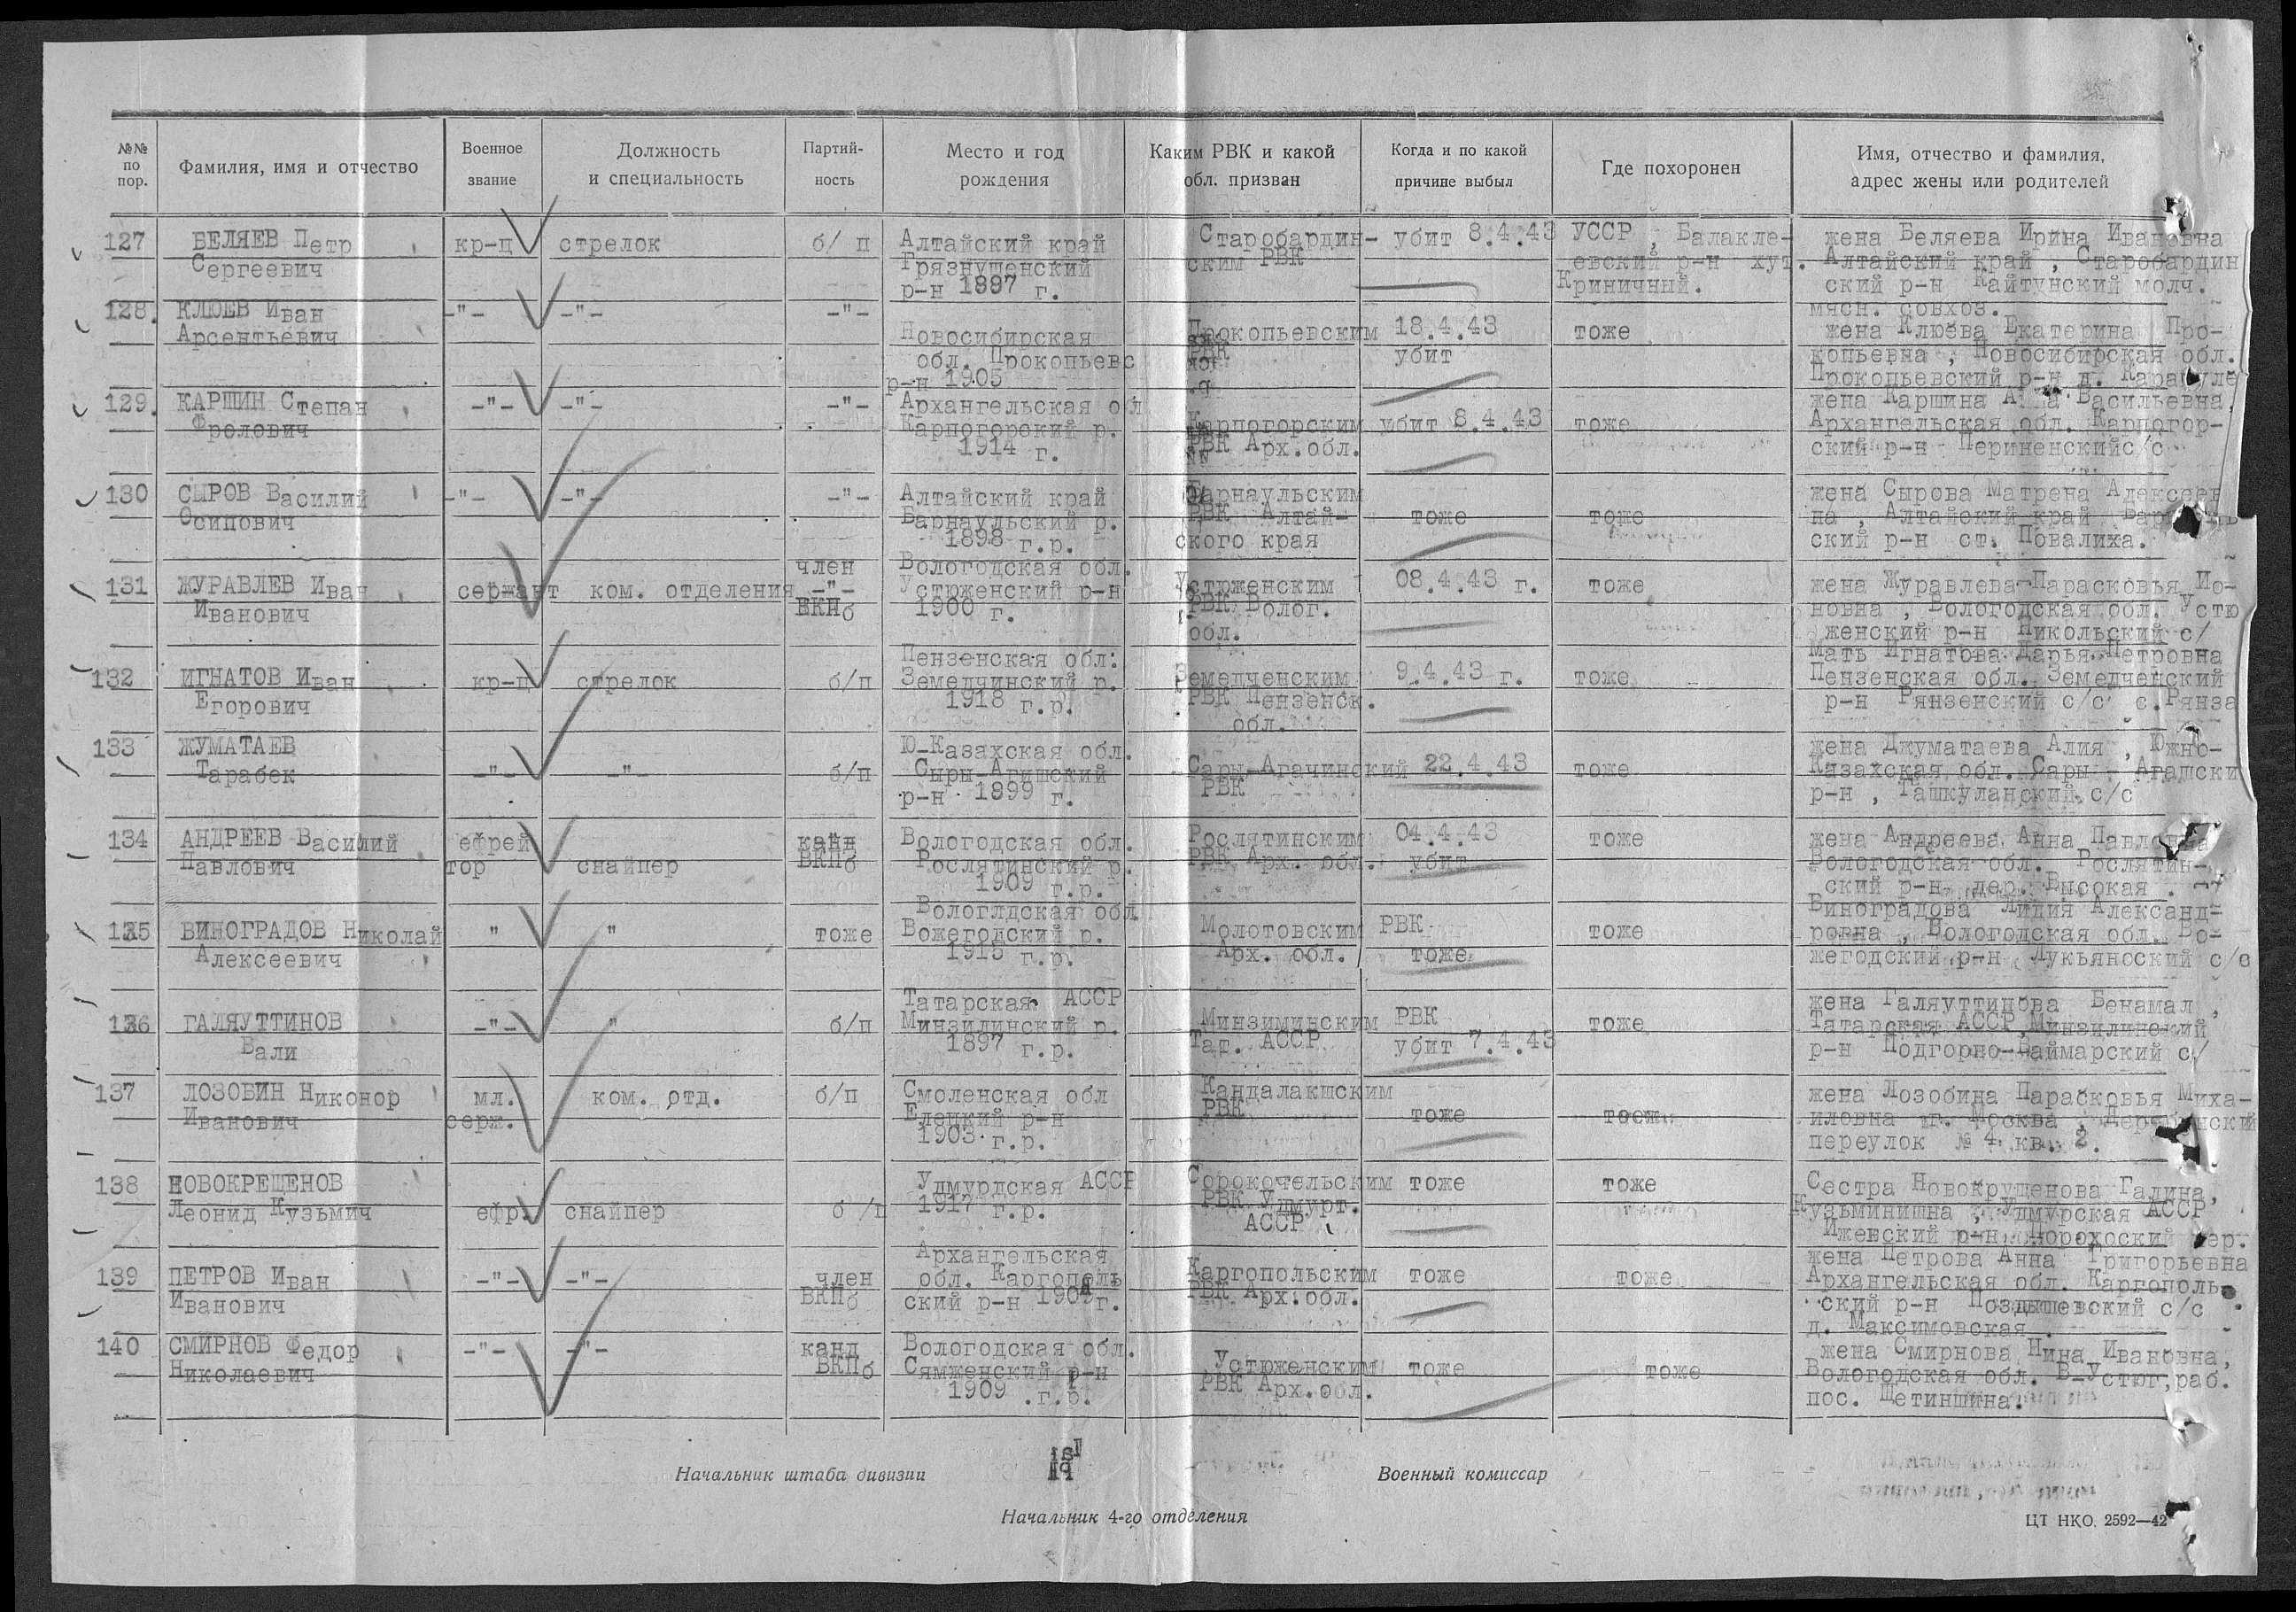 №№ по пор.
Фамилия, имя и отчество
Военное звание
Должность и специальность
Партий-ность
Место и год рождения
Каким РВК и какой обл. призван
Когда и по какой причине выбыл
Где похоронен
Имя, отчество и фамилия, адрес жены или родителей
127 БЕЛЯЕВ Петр кр-ц стрелок б/п Алтайский край Старобардин- убит 8.4.43 УССР, Балакле- жена Беляева Ирина Ивановна
Сергеевич Грязнушенский ским РВК евский р-н хут. Алтайский край, Старобардин
р-н 1897 г. Криничный. ский р-н Кайтунский молч.
мясн. совхоз.
128. КЛЮЕВ Иван -"- -"- -"- Новосибирская Прокопьевским 18.4.43 тоже жена Клюева Екатерина Про-
Арсентьевич обл. Прокопьевс РВК убит копьевна, Новосибирская обл.
р-н 1905 Прокопьевский р-н д.
129. КАРШИН Степан -"- -"- -"- Архангельская обл жена Каршина Васильевна,
Фролович Карпогорский р. Карпогорским убит 8.4.43 тоже Архангельская обл. Карпогор-
1914 г. РВК Арх.обл. ский р-н Периненский с/с
130 СЫРОВ Василий -"- -"- -"- Алтайский край Барнаульским жена Сырова Матрена Алексеев
Осипович Барнаульский р. РВК Алтай- тоже тоже на, Алтайский край
1898 г.р. ского края ский р-н ст. Повалиха.
131 ЖУРАВЛЕВ Иван сержант ком. отделения член -"- Вологодская обл. Устюженским 08.4.43 г. тоже жена Журавлева Парасковья Ио-
Иванович ВКПб Устюженский р-н РВК Волог. новна, Вологодская обл. Устю
1900 г. обл. женский р-н Никольский с/
132 ИГНАТОВ Иван кр-ц стрелок б/п Пензенская обл: Мать Игнатова Дарья Петровна
Егорович Земедчинский р. Земедченским 9.4.43 г. тоже Пензенская обл. Земедченский
1918 г.р. РВК Пензенск. обл. р-н Рянзенский с/с с.Рянза
133 ЖУМАТАЕВ Ю-Казахская обл. жена Джуматаева Алия, Южно-
Тарабек -"- -"- б/п Сыры-Агишский Сары-Агачинский 22.4.43 тоже Казахская обл. Сары-Агашски
р-н 1899 г. РВК р-н, Ташкуланский с/с
134 АНДРЕЕВ Василий ефрей канд Вологодская обл. Рослятинским 04.4.43 тоже жена Андреева Анна
Павлович тор снайпер ВКПб Рослятинский р. РВК Арх. обл. убит Вологодская обл. Рослятин-
1909 г.р. ский р-н, дер. Высокая.
135 ВИНОГРАДОВ Николай " " тоже Вологлдская обл Молотовским РВК тоже Виноградова Лидия Александ-
Алексеевич Вожегодский р. Арх. обл. тоже ровна, Вологодская обл. Во-
1915 г.р. жегодский р-н Лукьяноский с/с
136 ГАЛЯУТТИНОВ -"- " б/п Татарская АССР Минзиминским РВК тоже жена Галяуттинова Бенамал,
Вали Минзилинский р. Тат. АССР убит 7.4.43 Татарская АССР, Минзилинский
1897 г.р. р-н Подгорно-Баймарский с/
137 ЛОЗОВИН Никонор мл. ком. отд. б/п Смоленская обл Кандалакшским жена Лозобина Парасковья Миха-
Иванович серж. Елецкий р-н РВК тоже иловна г. Москва,
1903 г.р. переулок № 4 кв. 2.
138 НОВОКРЕЩЕНОВ Удмурдская АССР Сорокочельским тоже тоже Сестра Новокрущенова Галина,
Леонид Кузьмич ефр. снайпер б/п 1917 г.р. РВК Удмурт. АССР Кузьминишна, Удмурская АССР
Ижевский р-н
139 ПЕТРОВ Иван -"- -"- член Архангельская Каргопольским тоже тоже жена Петрова Анна Григорьевна
Иванович ВКПб обл. Каргополь РВК Арх.обл. Архангельская обл. Каргополь-
ский р-н ский р-н Поздышевский с/с
д. Максимовская.
140 СМИРНОВ Федор -"- -"- канд Вологодская обл. жена Смирнова Нина Ивановна,
Николаевич ВКПб Сямженский р-н Устюженским тоже тоже Вологодская обл. В-Устюг, раб.
1909 г.р. РВК Арх.обл. пос. Щетиншина.
Начальник штаба дивизии
Военный комиссар
Начальник 4-го отделения
ЦТ НКО. 2592—42